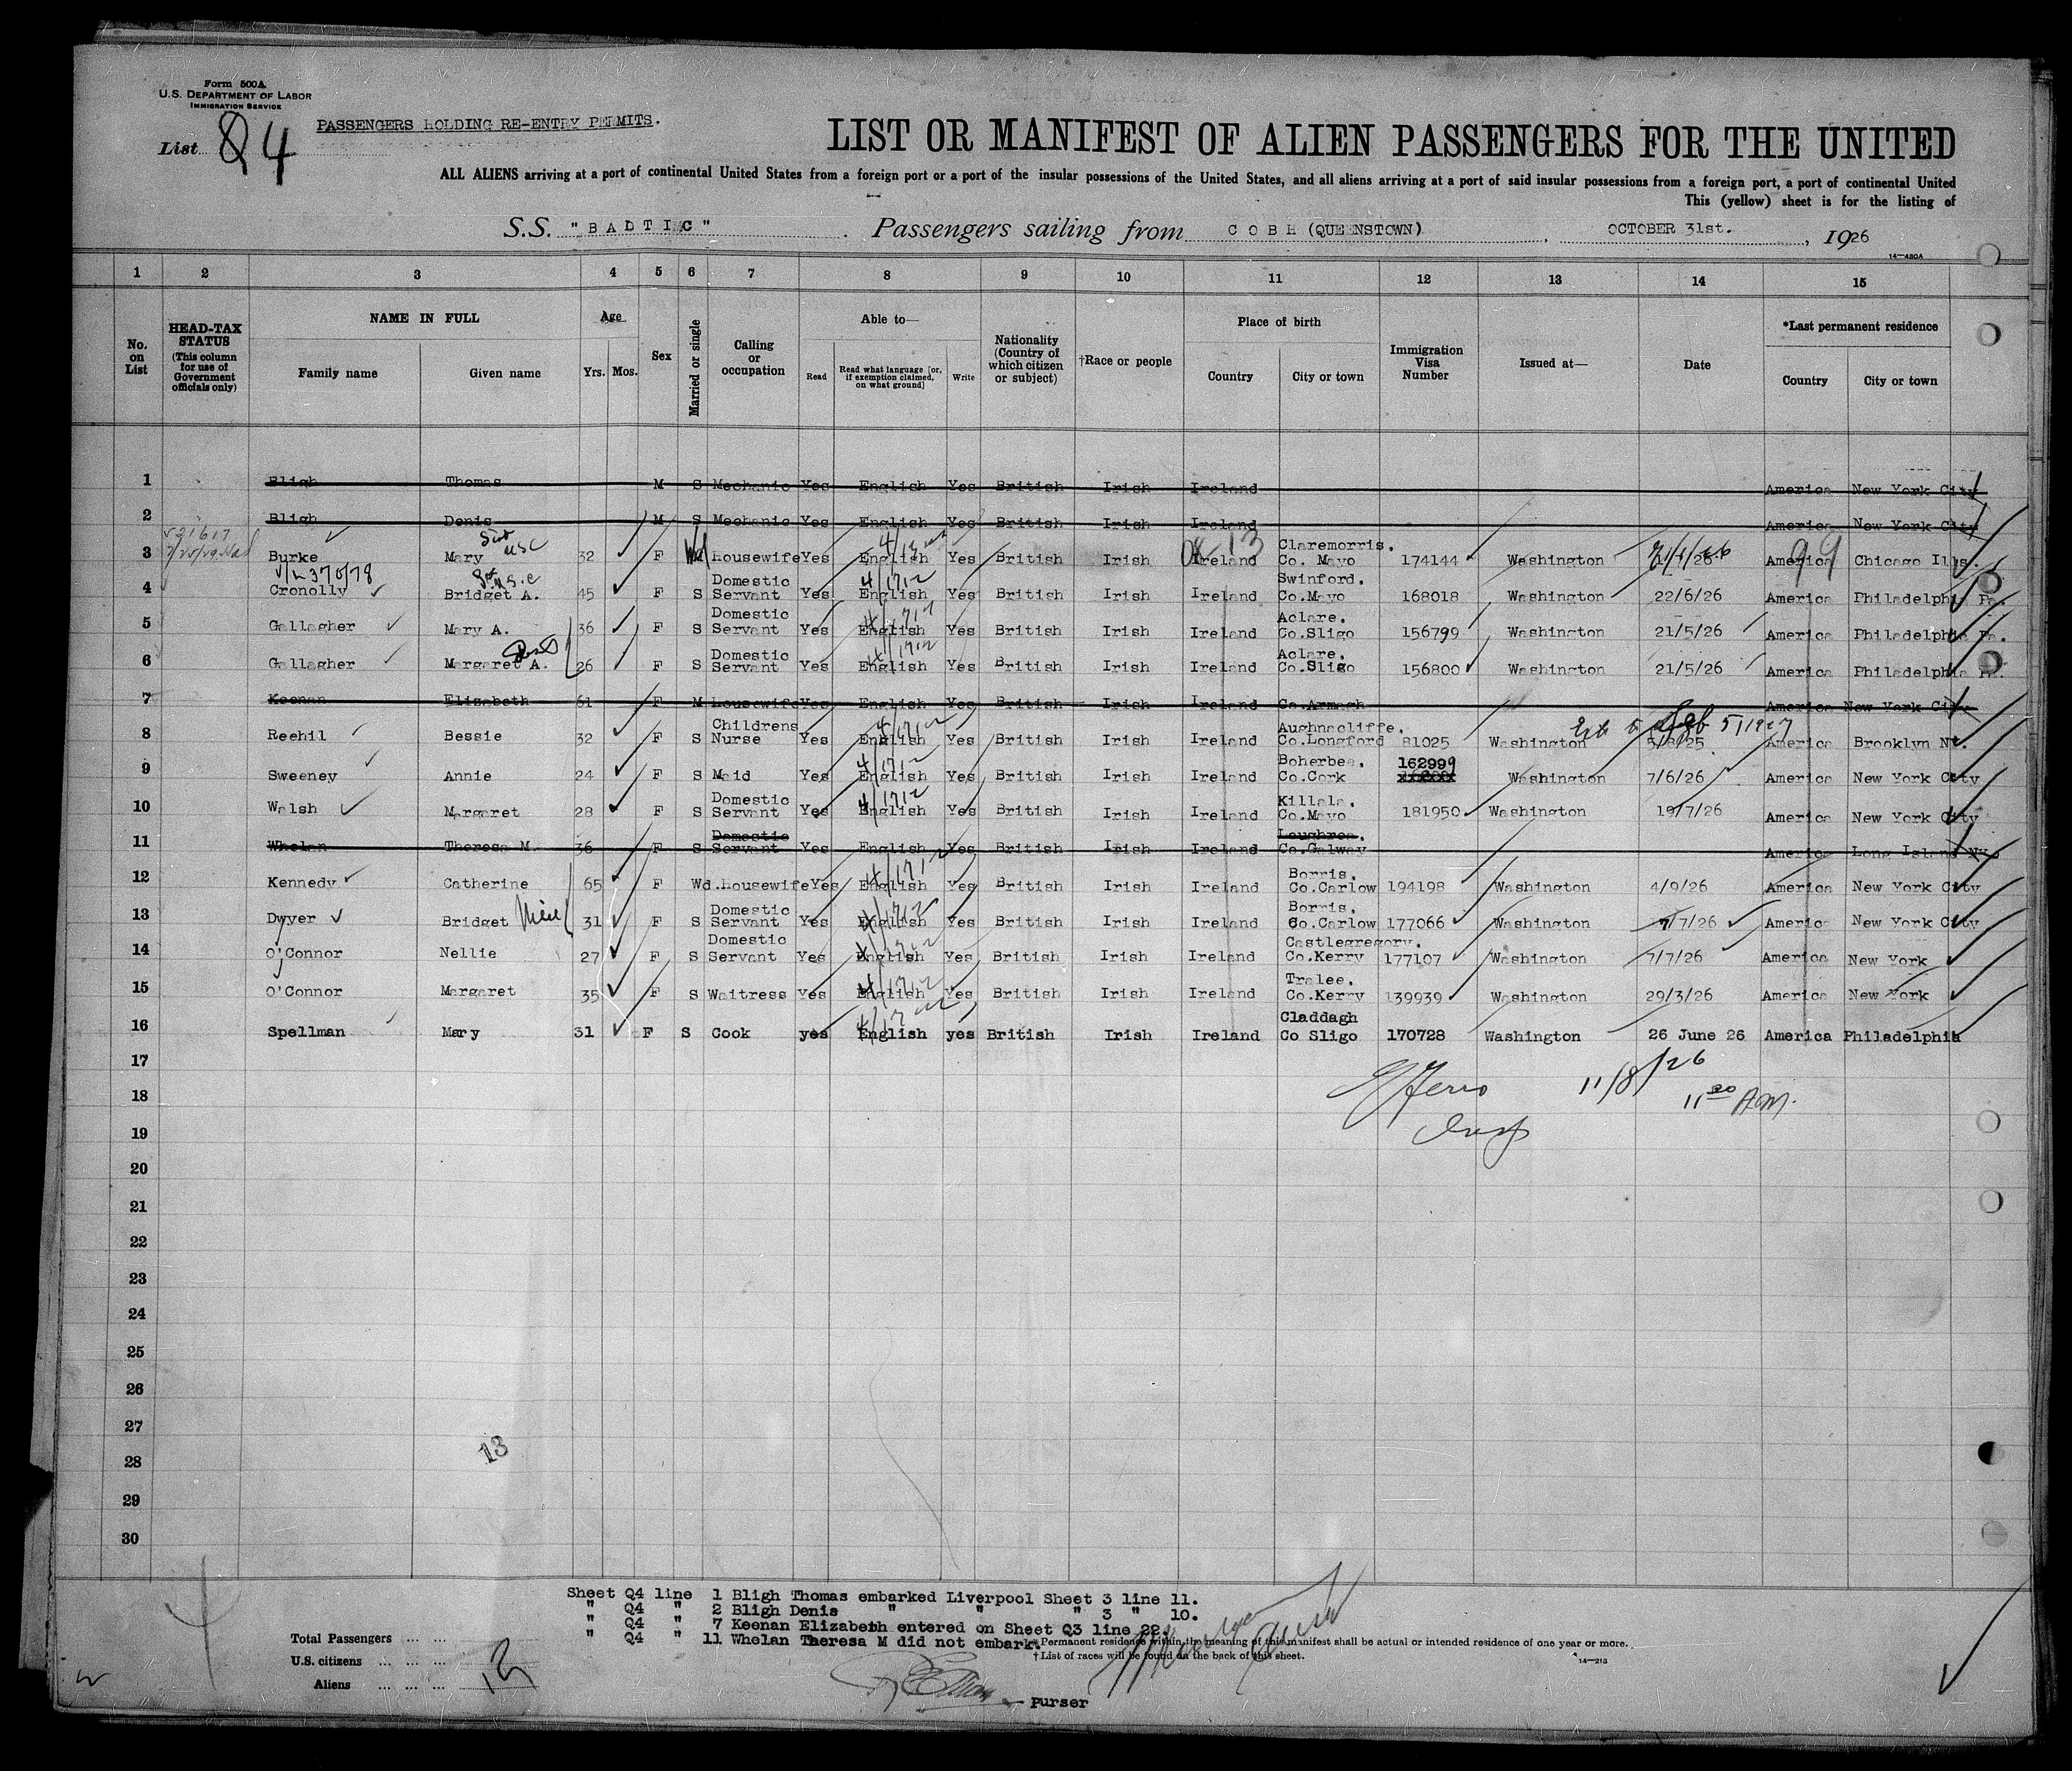 Form 500A
U.S. DEPARTMENT OF LABOR
IMMIGRATION SERVICE
PASSENGERS HOLDING RE-ENTRY PERMITS.
List Q4
LIST OR MANIFEST OF ALIEN PASSENGERS FOR THE UNITED
ALL ALIENS arriving at a port of continental United States from a foreign port or a port of the insular possessions of the United States, and all aliens arriving at a port of said insular possessions from a foreign port, a port of continental United
This (yellow) sheet is for the listing of
S.S. "BADTIC" . Passengers sailing from COBH (QUEENSTOWN) , OCTOBER 31st. , 1926
14—480A
1 2 3 4 5 6 7 8 9 10 11 12 13 14 15
No. on List
HEAD-TAX STATUS (This column for use of Government officials only)
NAME IN FULL
Family name Given name
Age
Yrs. Mos.
Sex
Married or single
Calling or occupation
Able to—
Read
Read what language [or, if exemption claimed, on what ground]
Write
Nationality (Country of which citizen or subject)
†Race or people
Place of birth
Country City or town
Immigration Visa Number
Issued at—
Date
*Last permanent residence
Country City or town
1 Bligh Thomas M S Mechanic Yes English Yes British Irish Ireland America New York City
2 Bligh Denis M S Mechanic Yes English Yes British Irish Ireland America New York City
3 Burke Mary 32 F Wd Housewife Yes English Yes British Irish Ireland Claremorris. Co. Mayo 174144 Washington America Chicago Ills.
4 Cronolly Bridget A. 45 F S Domestic Servant Yes English Yes British Irish Ireland Swinford. Co.Mayo 168018 Washington 22/6/26 America Philadelphia Pa.
5 Gallagher Mary A. 36 F S Domestic Servant Yes English Yes British Irish Ireland Aclare. Co.Sligo 156799 Washington 21/5/26 America Philadelphia Pa.
6 Gallagher Margaret A. 26 F S Domestic Servant Yes English Yes British Irish Ireland Aclare. Co.Sligo 156800 Washington 21/5/26 America Philadelphia Pa.
7 Keenan Elizabeth 61 F M Housewife Yes English Yes British Irish Ireland Co.Armagh America New York City
8 Reehil Bessie 32 F S Childrens Nurse Yes English Yes British Irish Ireland Aughnacliffe. Co.Longford 81025 Washington 5/8/25 America Brooklyn NY.
9 Sweeney Annie 24 F S Maid Yes English Yes British Irish Ireland Boherbee. Co.Cork 162999 Washington 7/6/26 America New York City
10 Walsh Margaret 28 F S Domestic Servant Yes English Yes British Irish Ireland Killala. Co.Mayo 181950 Washington 19/7/26 America New York City
11 Whelan Theresa M. 36 F S Domestic Servant Yes English Yes British Irish Ireland Loughrea. Co.Galway America Long Island NY.
12 Kennedy Catherine 65 F Wd. Housewife Yes English Yes British Irish Ireland Borris. Co.Carlow 194198 Washington 4/9/26 America New York City
13 Dwyer Bridget Niece 31 F S Domestic Servant Yes English Yes British Irish Ireland Borris. Co.Carlow 177066 Washington 7/7/26 America New York City
14 O'Connor Nellie 27 F S Domestic Servant Yes English Yes British Irish Ireland Castlegregory. Co.Kerry 177107 Washington 7/7/26 America New York
15 O'Connor Margaret 35 F S Waitress Yes English Yes British Irish Ireland Tralee. Co.Kerry 139939 Washington 29/3/26 America New York
16 Spellman Mary 31 F S Cook yes English yes British Irish Ireland Claddagh Co Sligo 170728 Washington 26 June 26 America Philadelphia
17
18
19
20
21
22
23
24
25
26
27
28
29
30
11/8/26
11 30 AM.
13
Sheet Q4 line 1 Bligh Thomas embarked Liverpool Sheet 3 line 11.
" Q4 " 2 Bligh Denis " " " 3 " 10.
" Q4 " 7 Keenan Elizabeth entered on Sheet Q3 line 22.
" Q4 " 11 Whelan Theresa M did not embark.
Total Passengers ... ... ...
U.S. citizens ... ... ...
Aliens ... ... ... 12
*Permanent residence within the meaning of this manifest shall be actual or intended residence of one year or more.
†List of races will be found on the back of this sheet.
14—213
Purser